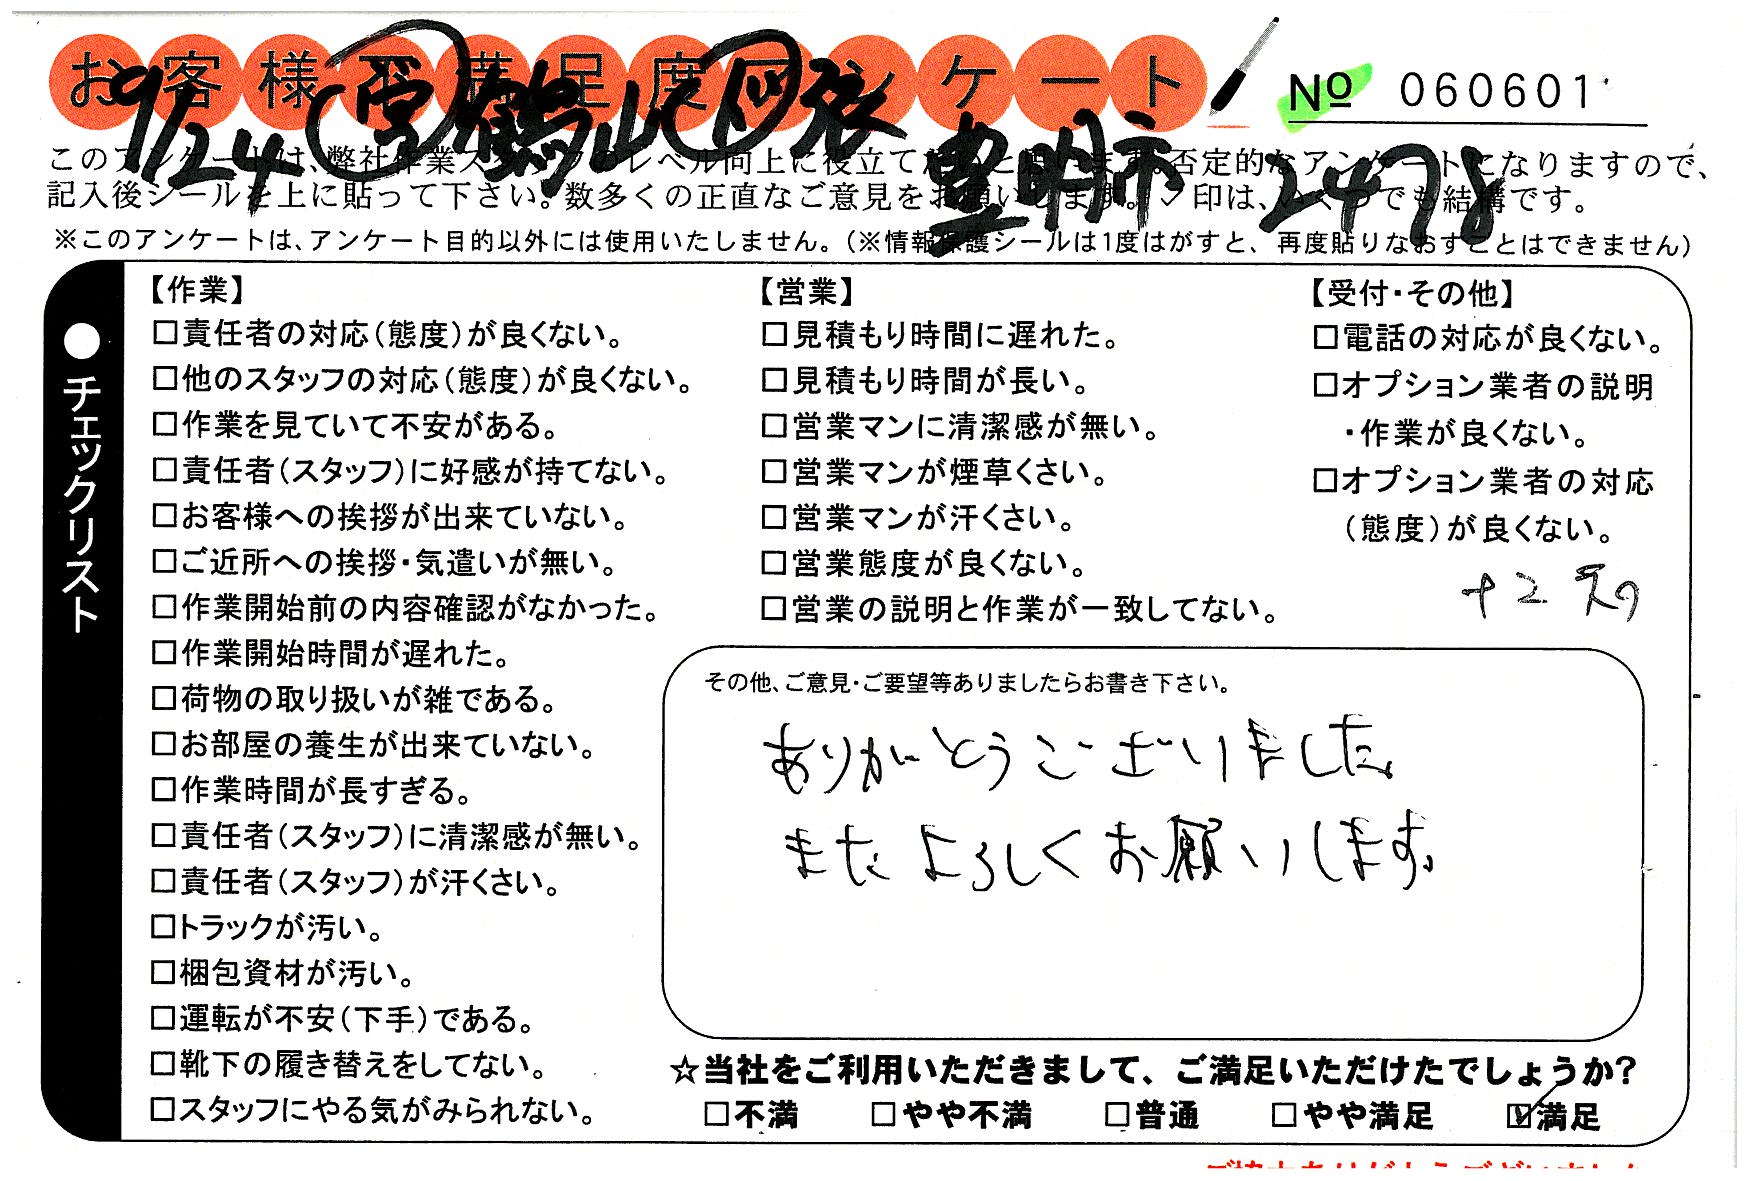 お客様満足度アンケート
No 060601
9/24 営 鶴山 図
豊明市 2478
このアンケートは、弊社作業スタッフのレベル向上に役立てたいと思います。否定的なアンケートになりますので、
記入後シールを上に貼って下さい。数多くの正直なご意見をお願いします。✓印は、いくつでも結構です。
※このアンケートは、アンケート目的以外には使用いたしません。(※情報保護シールは1度はがすと、再度貼りなおすことはできません)
●チェックリスト
【作業】
□責任者の対応(態度)が良くない。
□他のスタッフの対応(態度)が良くない。
□作業を見ていて不安がある。
□責任者(スタッフ)に好感が持てない。
□お客様への挨拶が出来ていない。
□ご近所への挨拶・気遣いが無い。
□作業開始前の内容確認がなかった。
□作業開始時間が遅れた。
□荷物の取り扱いが雑である。
□お部屋の養生が出来ていない。
□作業時間が長すぎる。
□責任者(スタッフ)に清潔感が無い。
□責任者(スタッフ)が汗くさい。
□トラックが汚い。
□梱包資材が汚い。
□運転が不安(下手)である。
□靴下の履き替えをしてない。
□スタッフにやる気がみられない。
【営業】
□見積もり時間に遅れた。
□見積もり時間が長い。
□営業マンに清潔感が無い。
□営業マンが煙草くさい。
□営業マンが汗くさい。
□営業態度が良くない。
□営業の説明と作業が一致してない。
【受付・その他】
□電話の対応が良くない。
□オプション業者の説明
・作業が良くない。
□オプション業者の対応
(態度)が良くない。
その他、ご意見・ご要望等ありましたらお書き下さい。
ありがとうございました。
またよろしくお願いします。
☆当社をご利用いただきまして、ご満足いただけたでしょうか?
□不満 □やや不満 □普通 □やや満足 ☑満足